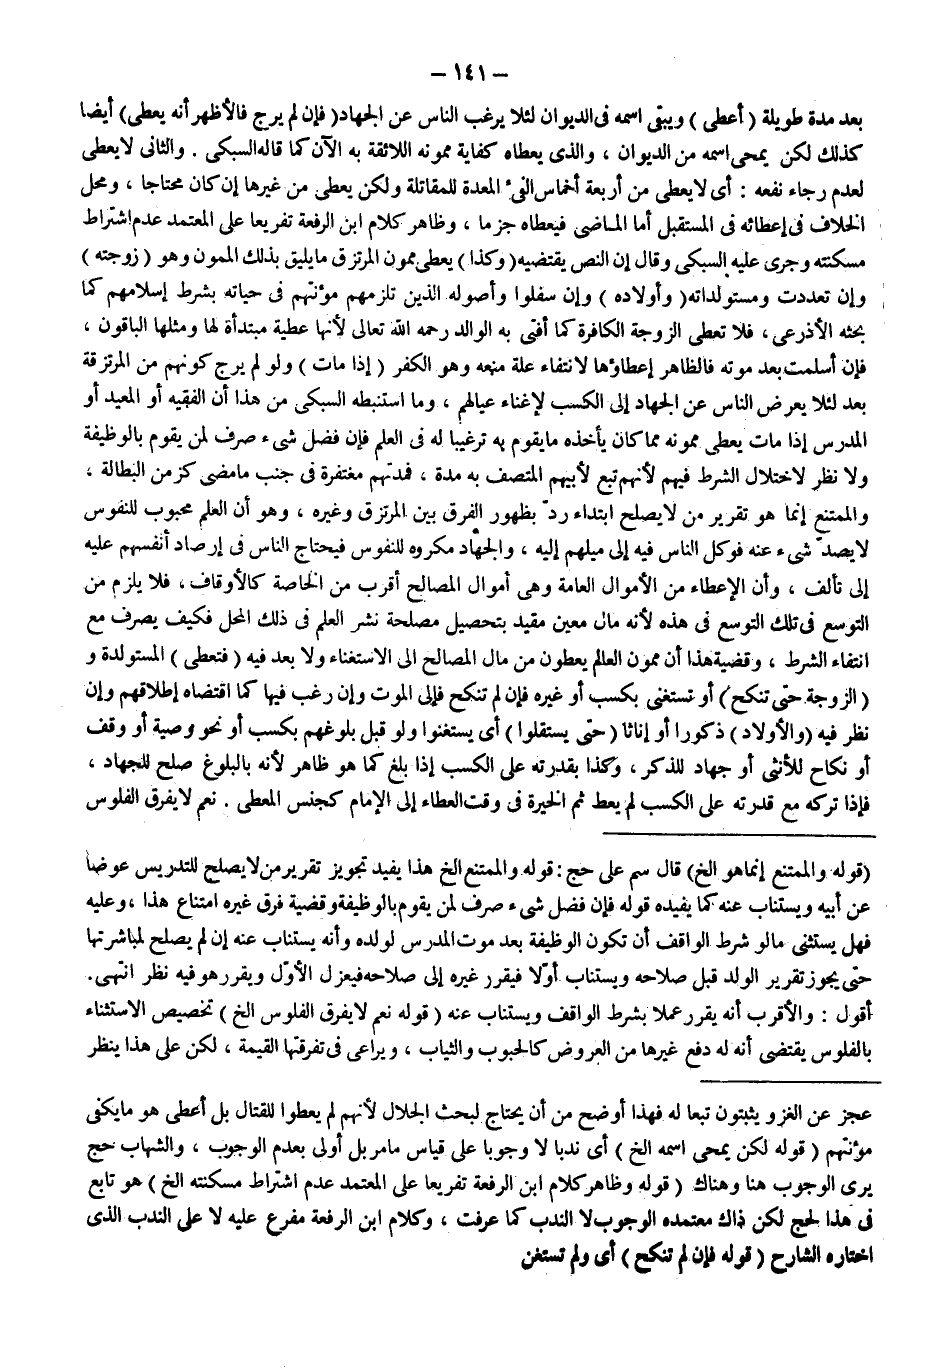 – ١٤١ –
بعد مدة طويلة ( أعطى ) ويبقى اسمه فى الديوان لئلا يرغب الناس عن الجهاد ( فإن لم يرج فالأظهر أنه يعطى ) أيضا
كذلك لكن يمحى اسمه من الديوان ، والذى يعطاه كفاية ممونه اللائقة به الآن كما قاله السبكى . والثانى لا يعطى
لعدم رجاء نفعه : أى لا يعطى من أربعة أخماس الفىء المعدة للمقاتلة ولكن يعطى من غيرها إن كان محتاجا ، ومحل
الخلاف فى إعطائه فى المستقبل أما الماضى فيعطاه جزما ، وظاهر كلام ابن الرفعة تفريعا على المعتمد عدم اشتراط
مسكنته وجرى عليه السبكى وقال إن النص يقتضيه ( وكذا ) يعطى ممون المرتزق ما يليق بذلك الممون وهو ( زوجته )
وإن تعددت ومستولداته ( وأولاده ) وإن سفلوا وأصوله الذين تلزمهم مؤنتهم فى حياته بشرط إسلامهم كما
بحثه الأذرعى ، فلا تعطى الزوجة الكافرة كما أفتى به الوالد رحمه الله تعالى لأنها عطية مبتدأة لها ومثلها الباقون ،
فإن أسلمت بعد موته فالظاهر إعطاؤها لانتفاء علة منعه وهو الكفر ( إذا مات ) ولو لم يرج كونهم من المرتزقة
بعد لئلا يعرض الناس عن الجهاد إلى الكسب لإغناء عيالهم ، وما استنبطه السبكى من هذا أن الفقيه أو المعيد أو
المدرس إذا مات يعطى ممونه مما كان يأخذه ما يقوم به ترغيبا له فى العلم فإن فضل شىء صرف لمن يقوم بالوظيفة
ولا نظر لاختلال الشرط فيهم لأنهم تبع لأبيهم المتصف به مدة ، فمدتهم مغتفرة فى جنب ما مضى كزمن البطالة ،
والممتنع إنما هو تقرير من لا يصلح ابتداء ردّ بظهور الفرق بين المرتزق وغيره ، وهو أن العلم محبوب للنفوس
لا يصدّ شىء عنه فوكل الناس فيه إلى ميلهم إليه ، والجهاد مكروه للنفوس فيحتاج الناس فى إرصاد أنفسهم عليه
إلى تألف ، وأن الإعطاء من الأموال العامة وهى أموال المصالح أقرب من الخاصة كالأوقاف ، فلا يلزم من
التوسع فى تلك التوسع فى هذه لأنه مال معين مقيد بتحصيل مصلحة نشر العلم فى ذلك المحل فكيف يصرف مع
انتفاء الشرط ، وقضية هذا أن ممون العالم يعطون من مال المصالح الى الاستغناء ولا بعد فيه ( فتعطى ) المستولدة و
( الزوجة حتى تنكح ) أو تستغنى بكسب أو غيره فإن لم تنكح فإلى الموت وإن رغب فيها كما اقتضاه إطلاقهم وإن
نظر فيه ( والأولاد ) ذكورا أو إناثا ( حتى يستقلوا ) أى يستغنوا ولو قبل بلوغهم بكسب أو نحو وصية أو وقف
أو نكاح للأنثى أو جهاد للذكر ، وكذا بقدرته على الكسب إذا بلغ كما هو ظاهر لأنه بالبلوغ صلح للجهاد ،
فإذا تركه مع قدرته على الكسب لم يعط ثم الخيرة فى وقت العطاء إلى الإمام كجنس المعطى . نعم لا يفرق الفلوس
(قوله والممتنع إنما هو الخ) قال سم على حج : قوله والممتنع الخ هذا يفيد تجويز تقرير من لا يصلح للتدريس عوضا
عن أبيه ويستناب عنه كما يفيده قوله فإن فضل شىء صرف لمن يقوم بالوظيفة وقضية فرق غيره امتناع هذا ، وعليه
فهل يستثنى ما لو شرط الواقف أن تكون الوظيفة بعد موت المدرس لولده وأنه يستناب عنه إن لم يصلح لمباشرتها
حتى يجوز تقرير الولد قبل صلاحه ويستناب أوّلا فيقرر غيره إلى صلاحه فيعزل الأوّل ويقرر هو فيه نظر انتهى .
أقول : والأقرب أنه يقرر عملا بشرط الواقف ويستناب عنه ( قوله نعم لا يفرق الفلوس الخ ) تخصيص الاستثناء
بالفلوس يقتضى أنه له دفع غيرها من العروض كالحبوب والثياب ، ويراعى فى تفرقتها القيمة ، لكن على هذا ينظر
عجز عن الغزو يثبتون تبعا له فهذا أوضح من أن يحتاج لبحث الجلال لأنهم لم يعطوا للقتال بل أعطى هو ما يكفى
مؤنتهم ( قوله لكن يمحى اسمه الخ ) أى ندبا لا وجوبا على قياس ما مر بل أولى بعدم الوجوب ، والشهاب حج
يرى الوجوب هنا وهناك ( قوله وظاهر كلام ابن الرفعة تفريعا على المعتمد عدم اشتراط مسكنته الخ ) هو تابع
فى هذا لحج لكن ذاك معتمده الوجوب لا الندب كما عرفت ، وكلام ابن الرفعة مفرع عليه لا على الندب الذى
اختاره الشارح ( قوله فإن لم تنكح ) أى ولم تستغن